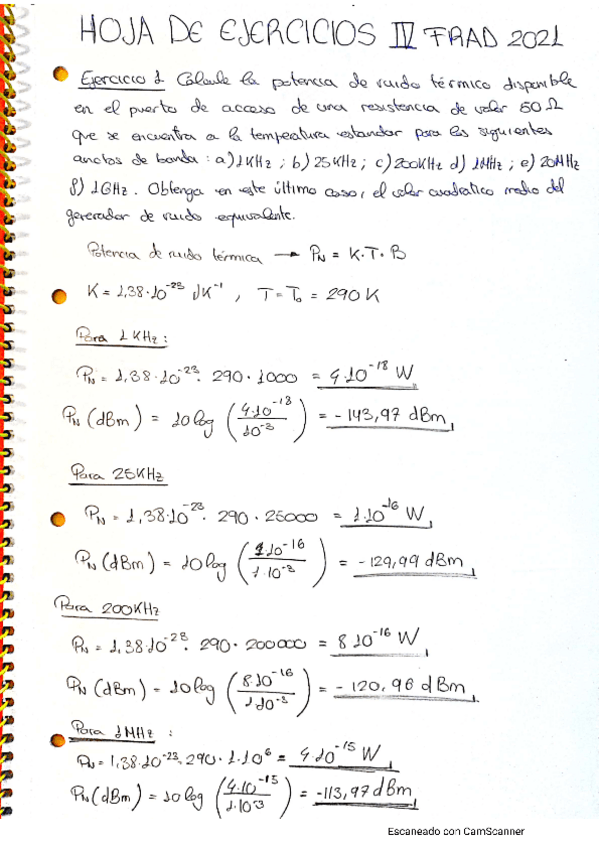 HOJA DE EJERCICIOS IV FRAD 2021
Ejercicio 1 Calcule la potencia de ruido térmico disponible
en el puerto de acceso de una resistencia de valor 50 Ω
que se encuentra a la temperatura estandar para los siguientes
anchos de banda: a) 1KHz ; b) 25KHz ; c) 200KHz d) 1MHz ; e) 20MHz
f) 1GHz . Obtenga en este último caso, el valor cuadratico medio del
generador de ruido equivalente.
Potencia de ruido térmica → PN = K·T·B
K = 1,38·10⁻²³ JK⁻¹ , T = T₀ = 290 K
Para 1 KHz :
PN = 1,38·10⁻²³ · 290 · 1000 = 4·10⁻¹⁸ W
PN (dBm) = 10 log (4·10⁻¹⁸ / 10⁻³) = - 143,97 dBm
Para 25KHz
PN = 1,38·10⁻²³ · 290 · 25000 = 1·10⁻¹⁶ W
PN (dBm) = 10 log (1·10⁻¹⁶ / 1·10⁻³) = - 129,99 dBm
Para 200KHz
PN = 1,38·10⁻²³ · 290 · 200000 = 8·10⁻¹⁶ W
PN (dBm) = 10 log (8·10⁻¹⁶ / 1·10⁻³) = - 120,96 dBm
Para 1MHz :
PN = 1,38·10⁻²³ · 290 · 1·10⁶ = 4·10⁻¹⁵ W
PN (dBm) = 10 log (4·10⁻¹⁵ / 1·10⁻³) = -113,97 dBm
Escaneado con CamScanner